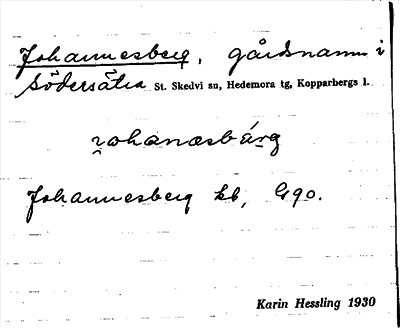 Johannesberg, gårdsnamn i
Södersätra St. Skedvi sn, Hedemora tg, Kopparbergs l.
Johannesberg kb, G90.
Karin Hessling 1930